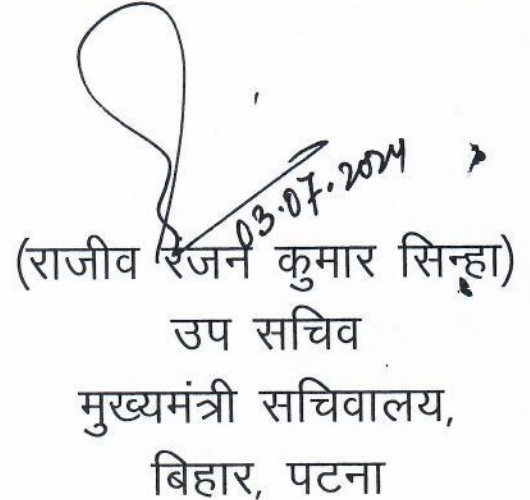 03.07.2024
(राजीव रंजन कुमार सिन्हा)
उप सचिव
मुख्यमंत्री सचिवालय,
बिहार, पटना